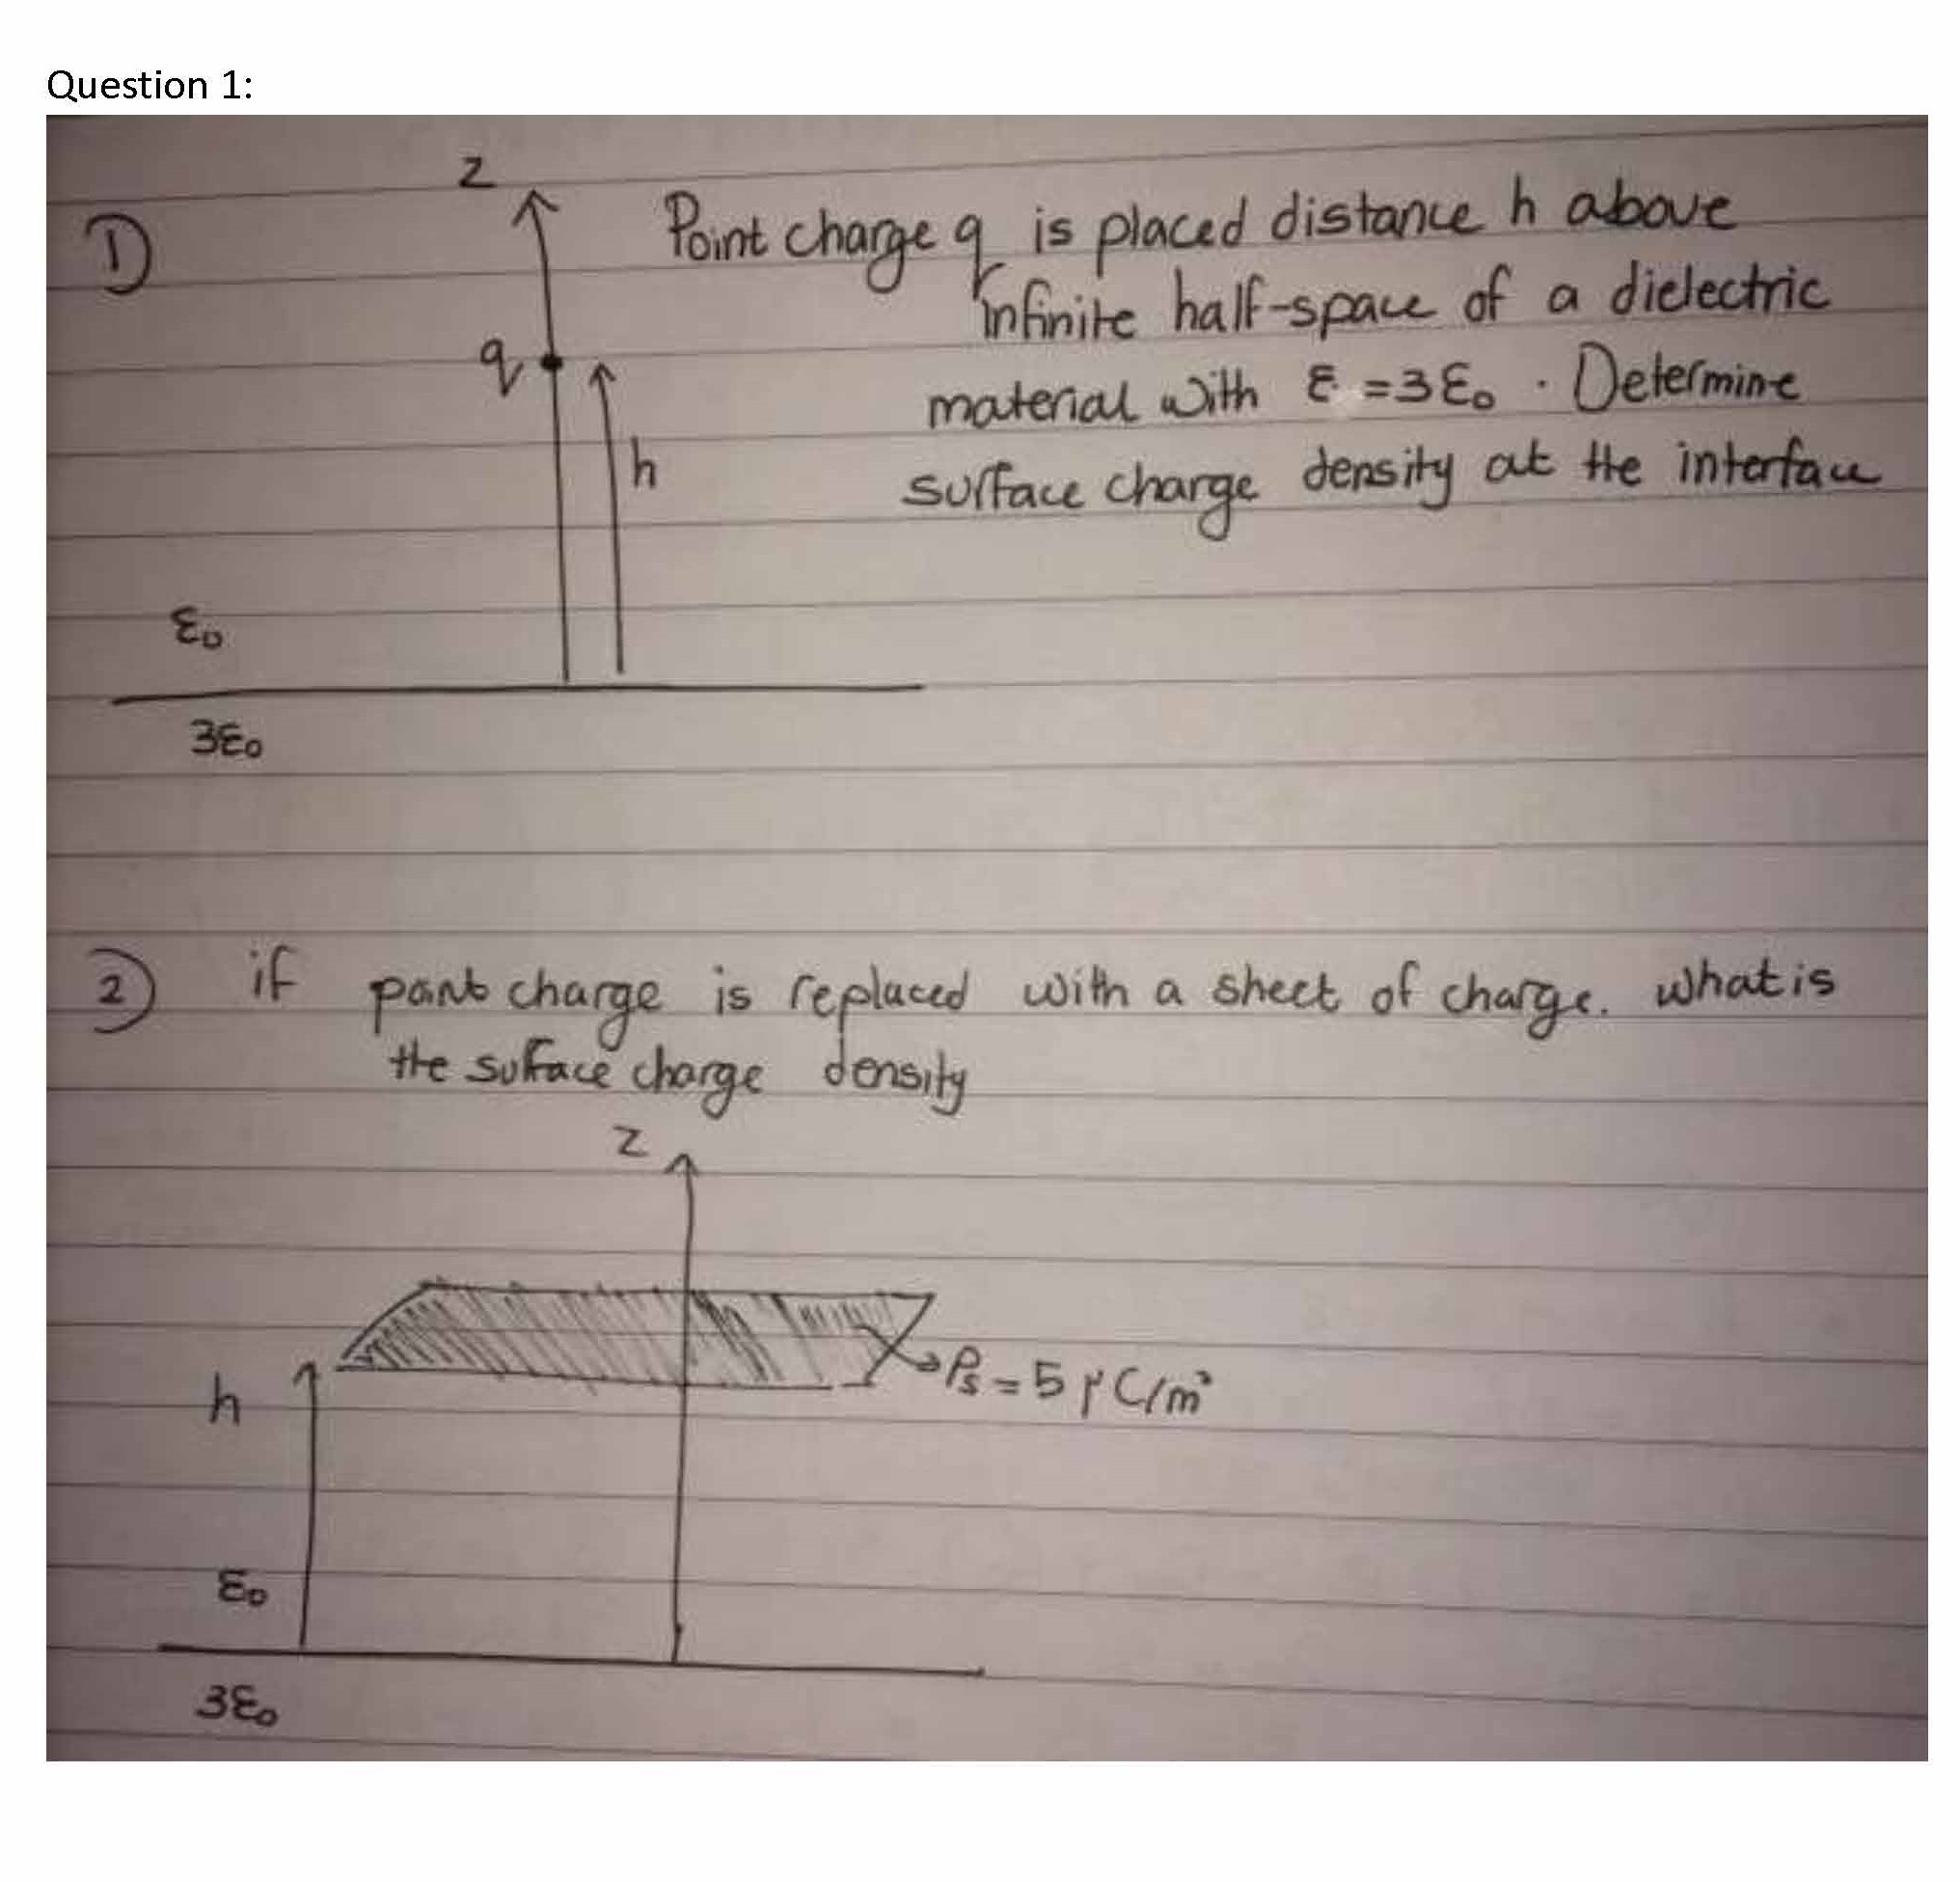 Question 1:
1)
z
Point charge q is placed distance h above
infinite half-space of a dielectric
q
material with ε = 3ε₀ . Determine
h
surface charge density at the interface
ε₀
3ε₀
2) if pant charge is replaced with a sheet of charge. what is
the surface charge density
z
h
ρs = 5 μC/m²
ε₀
3ε₀